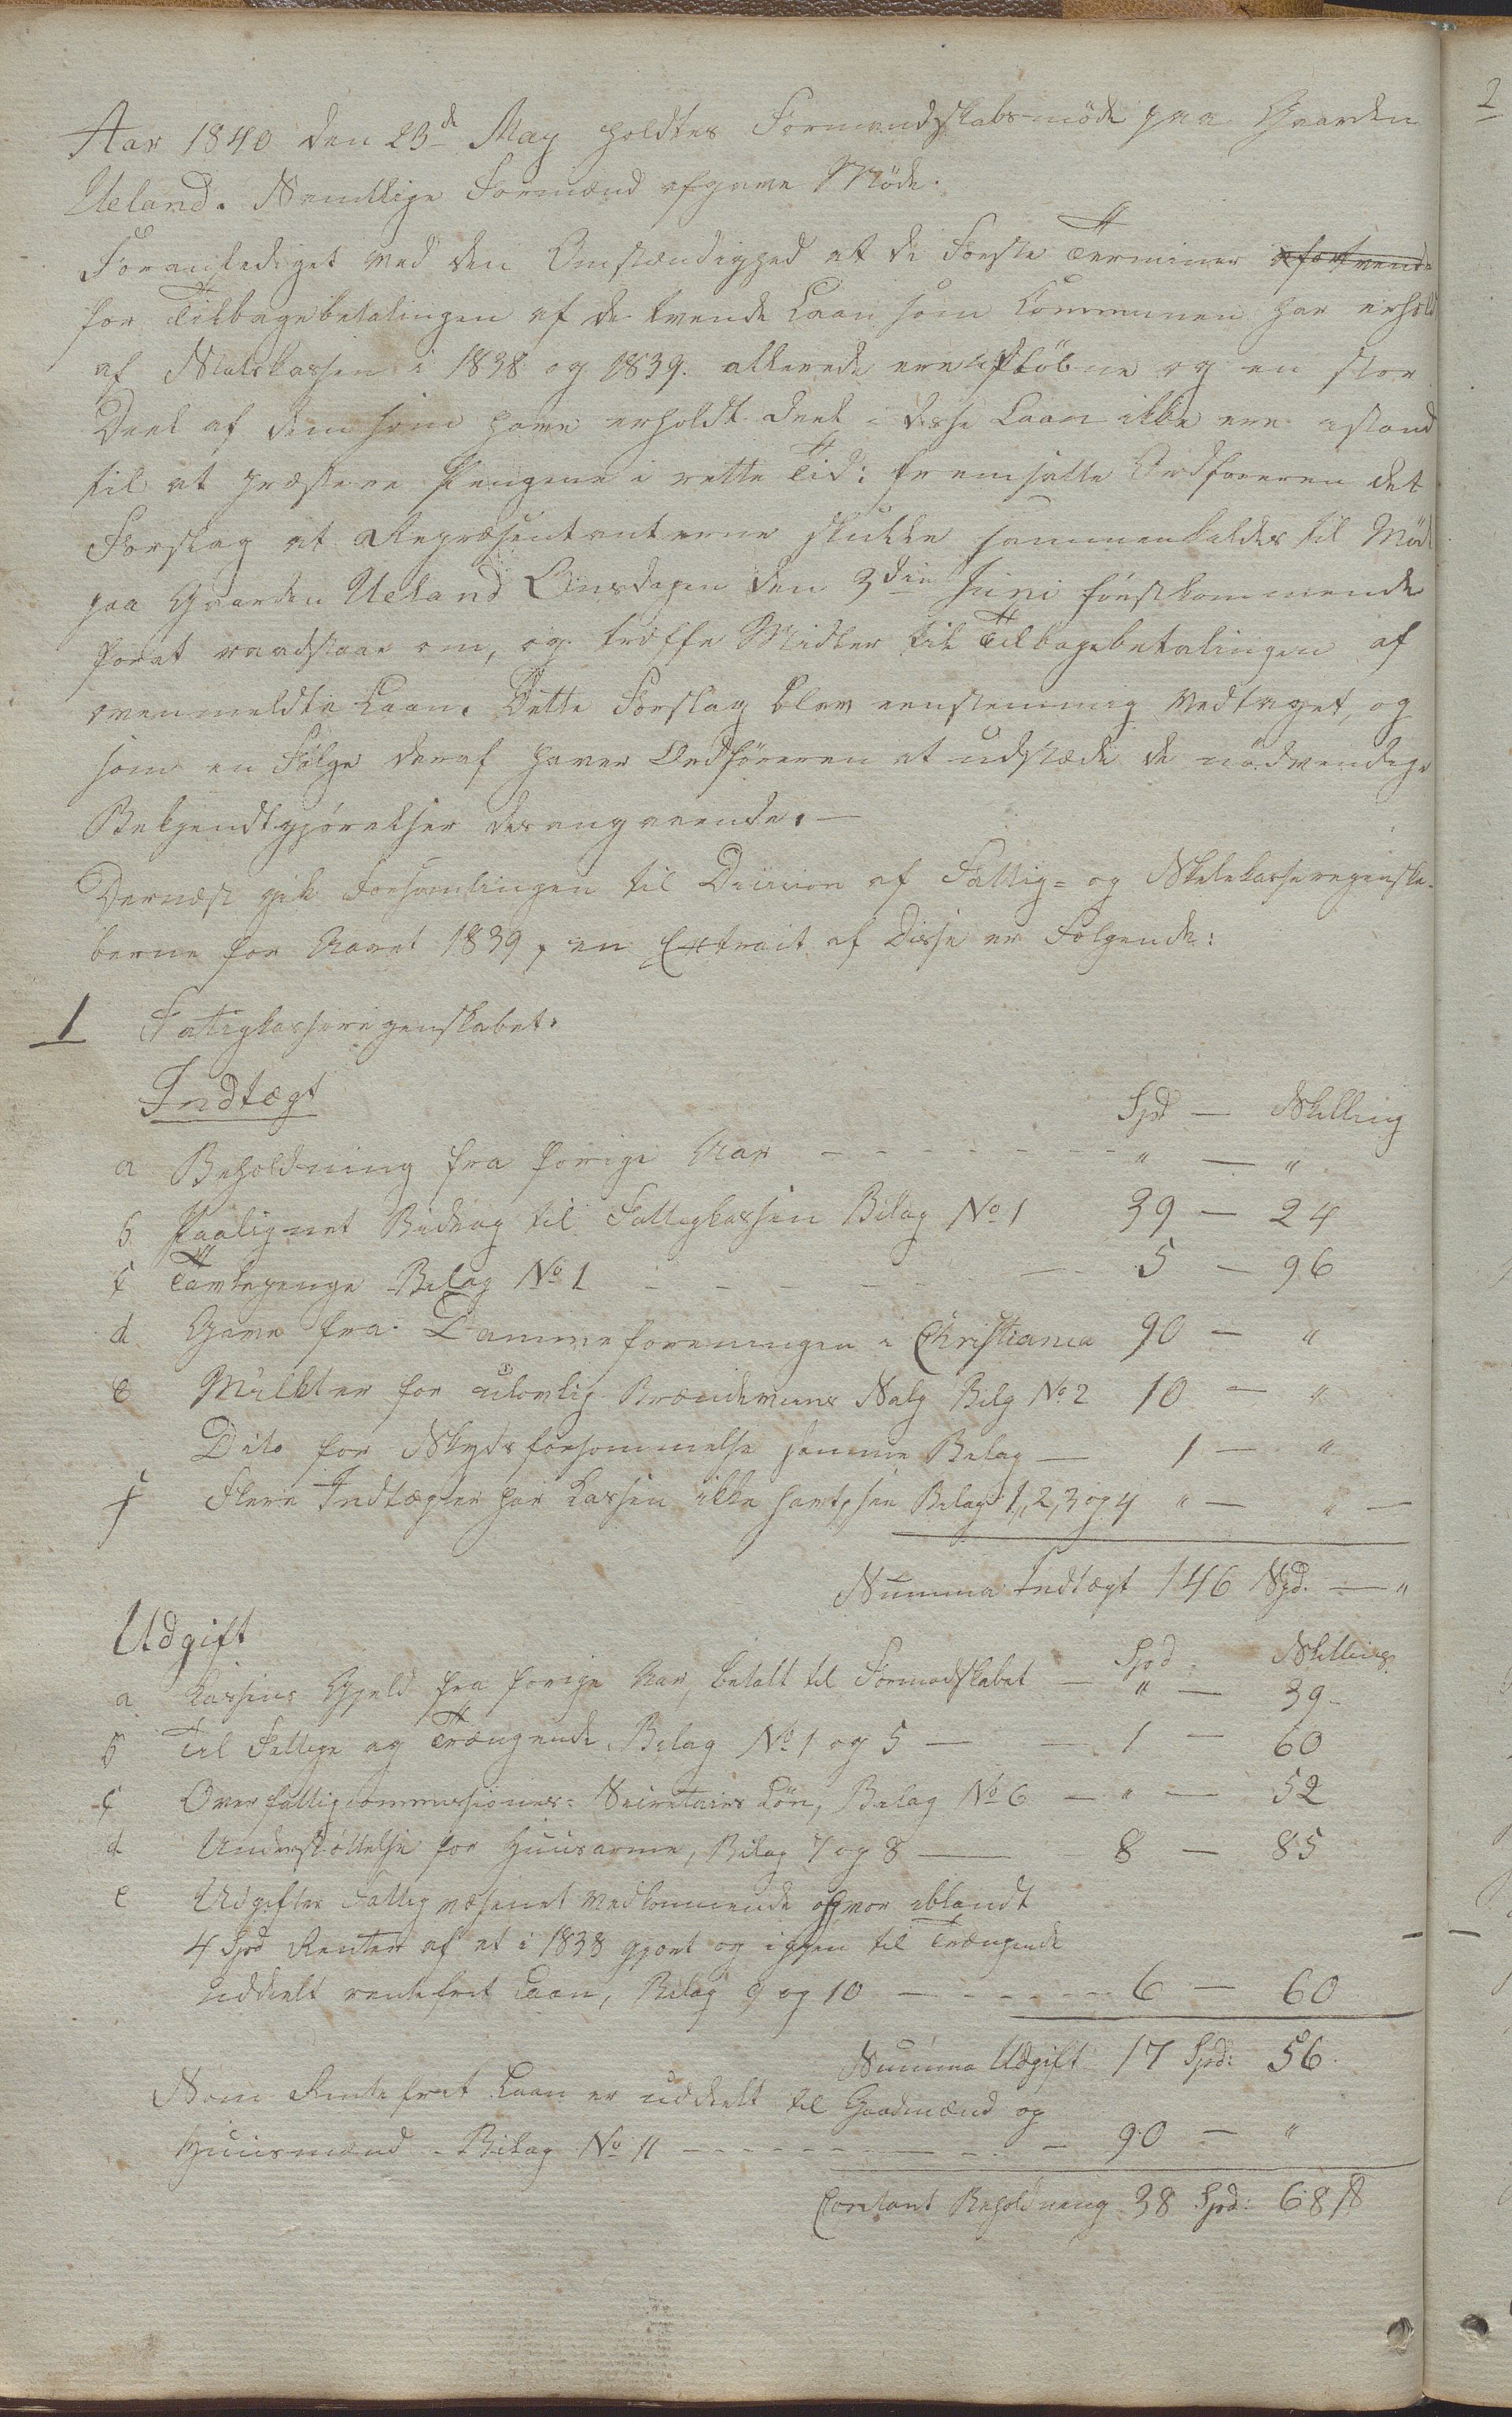 2
Aar 1840 den 23d May holdtes Formandskabs møde paa Gaarden
Ueland. Samtlige Formænd afgave Møde.
Foranlediget ved den Omstændighed at de Første Terminer
for Tilbagebetalingen af de tvende Laan som Communen har erhold
af Statskassen i 1838 og 1839. allerede ere udløbne og en stor
Deel af dem som have erholdt deel i disse Laan ikke ere istand
til at præstere Pengene i rette Tid: fremsatte Ordføreren det
Forslag at Repræsentanterne skulde sammenkaldes til Møde
paa Gaarden Ueland Onsdagen den 3die Juni førstkommende
forat raadslaae om, og træffe Midler til Tilbagebetalingen af
ovenmeldte Laan. Dette Forslag blev eenstemmig vedtaget, og
som en Følge deraf haver Ordføreren at udstæde de nødvendige
Bekjendtgjørelser desangaaende. —
Dernæst gik Forsamlingen til Decision af Fattig- og Skolekasseregnska-
berne for Aaret 1839, en Extrait af Disse er Følgende:
1 Fatigkasseregenskabet.
Indtægt
Spd — Skilling
a Beholdning fra forige Aar - - - - - - - " — "
b Paalignet Bidrag til Fattigkassen Bilag No 1 39 — 24
c Tavlepenge Bilag No 1 - - - - - 5 — 96
d Gave fra Dameforeningen i Christiania 90 — "
e Mulkter for ulovlig Brændeviins Salg Bilg No 2 10 — "
Dito for Skydsforsømmelse samme Bilag — 1 — "
f Flere Indtægter har Kassen ikke havt, see Bilag 1, 2, 3 og 4 " — " —
Summa Indtægt 146 Spd. — "
Udgift
Spd Skilling
a Kassens Gjeld fra forige Aar, betalt til Formandskabet — " — 39 -
b Til Fattige og Trængende Bilag No 1 og 5 — — 1 — 60
c Overfattigcommissions- Secretairs Løn, Bilag No 6 — " — 52
d Understøttelse for Huusarme, Bilag 7 og 8 — 8 — 85
e Udgifter Fattigvæsenet vedkommende hvor iblandt
4 Spd Renter af et i 1838 gjort og igjen til Trængende
Uddelt rentefrit Laan, Bilag 9 og 10 — - - - - - 6 — 60
Summa Udgift 17 Spd: 56.
Som Rentefrit Laan er uddelt til Gaadmænd og
Huusmænd - Bilag No 11 - - - - - - - 90 — "
Contant Beholdning 38 Spd: 68 ß